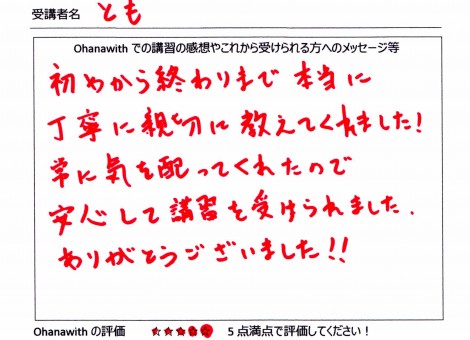 受講者名 とも
Ohanawith での講習の感想やこれから受けられる方へのメッセージ等
初めから終わりまで 本当に
丁寧に親切に教えてくれました!
常に気を配ってくれたので
安心して講習を受けられました.
ありがとうございました!!
Ohanawith の評価 ★★★★★ 5 点満点で評価してください！